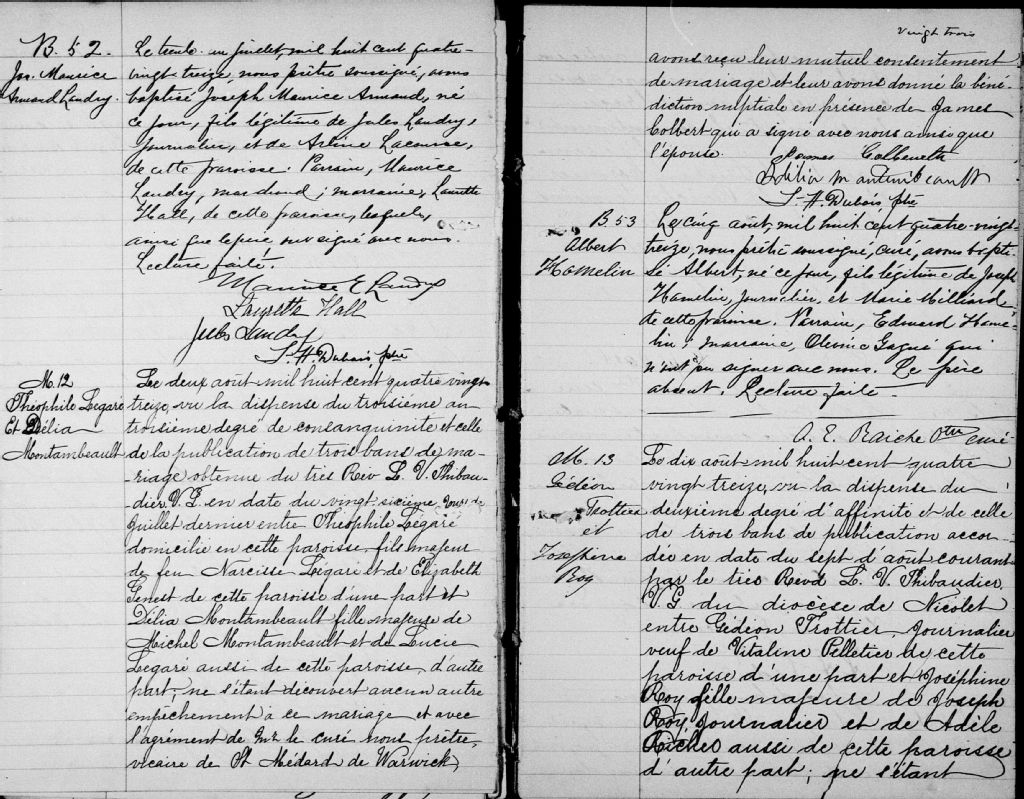 B. 52.
Jos. Maurice
Armand Landry.
Le trente un juillet, mil huit cent quatre-
vingt-treize, nous prêtre soussigné, avons
baptisé Joseph Maurice Armand, né
ce jour, fils légitime de Jules Landry,
journalier, et de Arline Lacourse,
de cette paroisse. Parrain, Maurice
Landry, marchand; marraine, Laurette
Hall, de cette paroisse, lesquels,
ainsi que le père ont signé avec nous.
Lecture faite.
Maurice E Landry
Laurette Hall
Jules Landry
L. H. Dubois, ptre
M. 12
Théophile Legaré
Et Délia
Montambeault
Le deux août mil huit cent quatre vingt
treize, vu la dispense du troisième au
troisième degré de consanguinité et celle
de la publication de trois bans de ma-
riage obtenue du très Rév L. V. Thibau-
dier V. G. en date du vingt sixième jour de
Juillet dernier entre Théophile Légaré
domicilié en cette paroisse, fils majeur
de feu Narcisse Légaré et de Elizabeth
Genest de cette paroisse d'une part et
Délia Montambeault fille majeure de
Michel Montambeault et de Lucie
Legaré aussi de cette paroisse, d'autre
part, ne s'étant découvert aucun autre
empêchement à ce mariage et avec
l'agrément de Mr le curé nous prêtre,
vicaire de St Médard de Warwick,
vingt trois
avons reçu leur mutuel consentement
de mariage et leur avons donné la béné-
diction nuptiale en présence de James
Colbert qui a signé avec nous ainsi que
l'épouse.
James
Délia Montambeault
L. H. Dubois, ptre
B 53
Albert
Hamelin
Le cinq août, mil huit cent quatre-vingt-
treize, nous prêtre soussigné, curé, avons bapti-
sé Albert, né ce jour, fils légitime de Joseph
Hamelin, journalier, et Marie Milliard
de cette paroisse. Parrain, Edouard Hame-
lin; marraine, Olevine Gagné qui
n'ont pu signer avec nous. Le père
absent. Lecture faite.
A. E. Raiche Ptre curé
M. 13
Gédéon
Trottier
et
Joséphine
Roy
Le dix août mil huit cent quatre
vingt treize, vu la dispense du
deuxième degré d'affinité et de celle
de trois bans de publication accor-
dée en date du sept d'août courant
par le très Revd L. V. Thibaudier
V. G du diocèse de Nicolet
entre Gédéon Trottier, Journalier
veuf de Vitaline Pelletier de cette
paroisse d'une part et Joséphine
Roy fille majeure de Joseph
Roy Journalier et de Adèle
Richer aussi de cette paroisse
d'autre part; ne s'étant